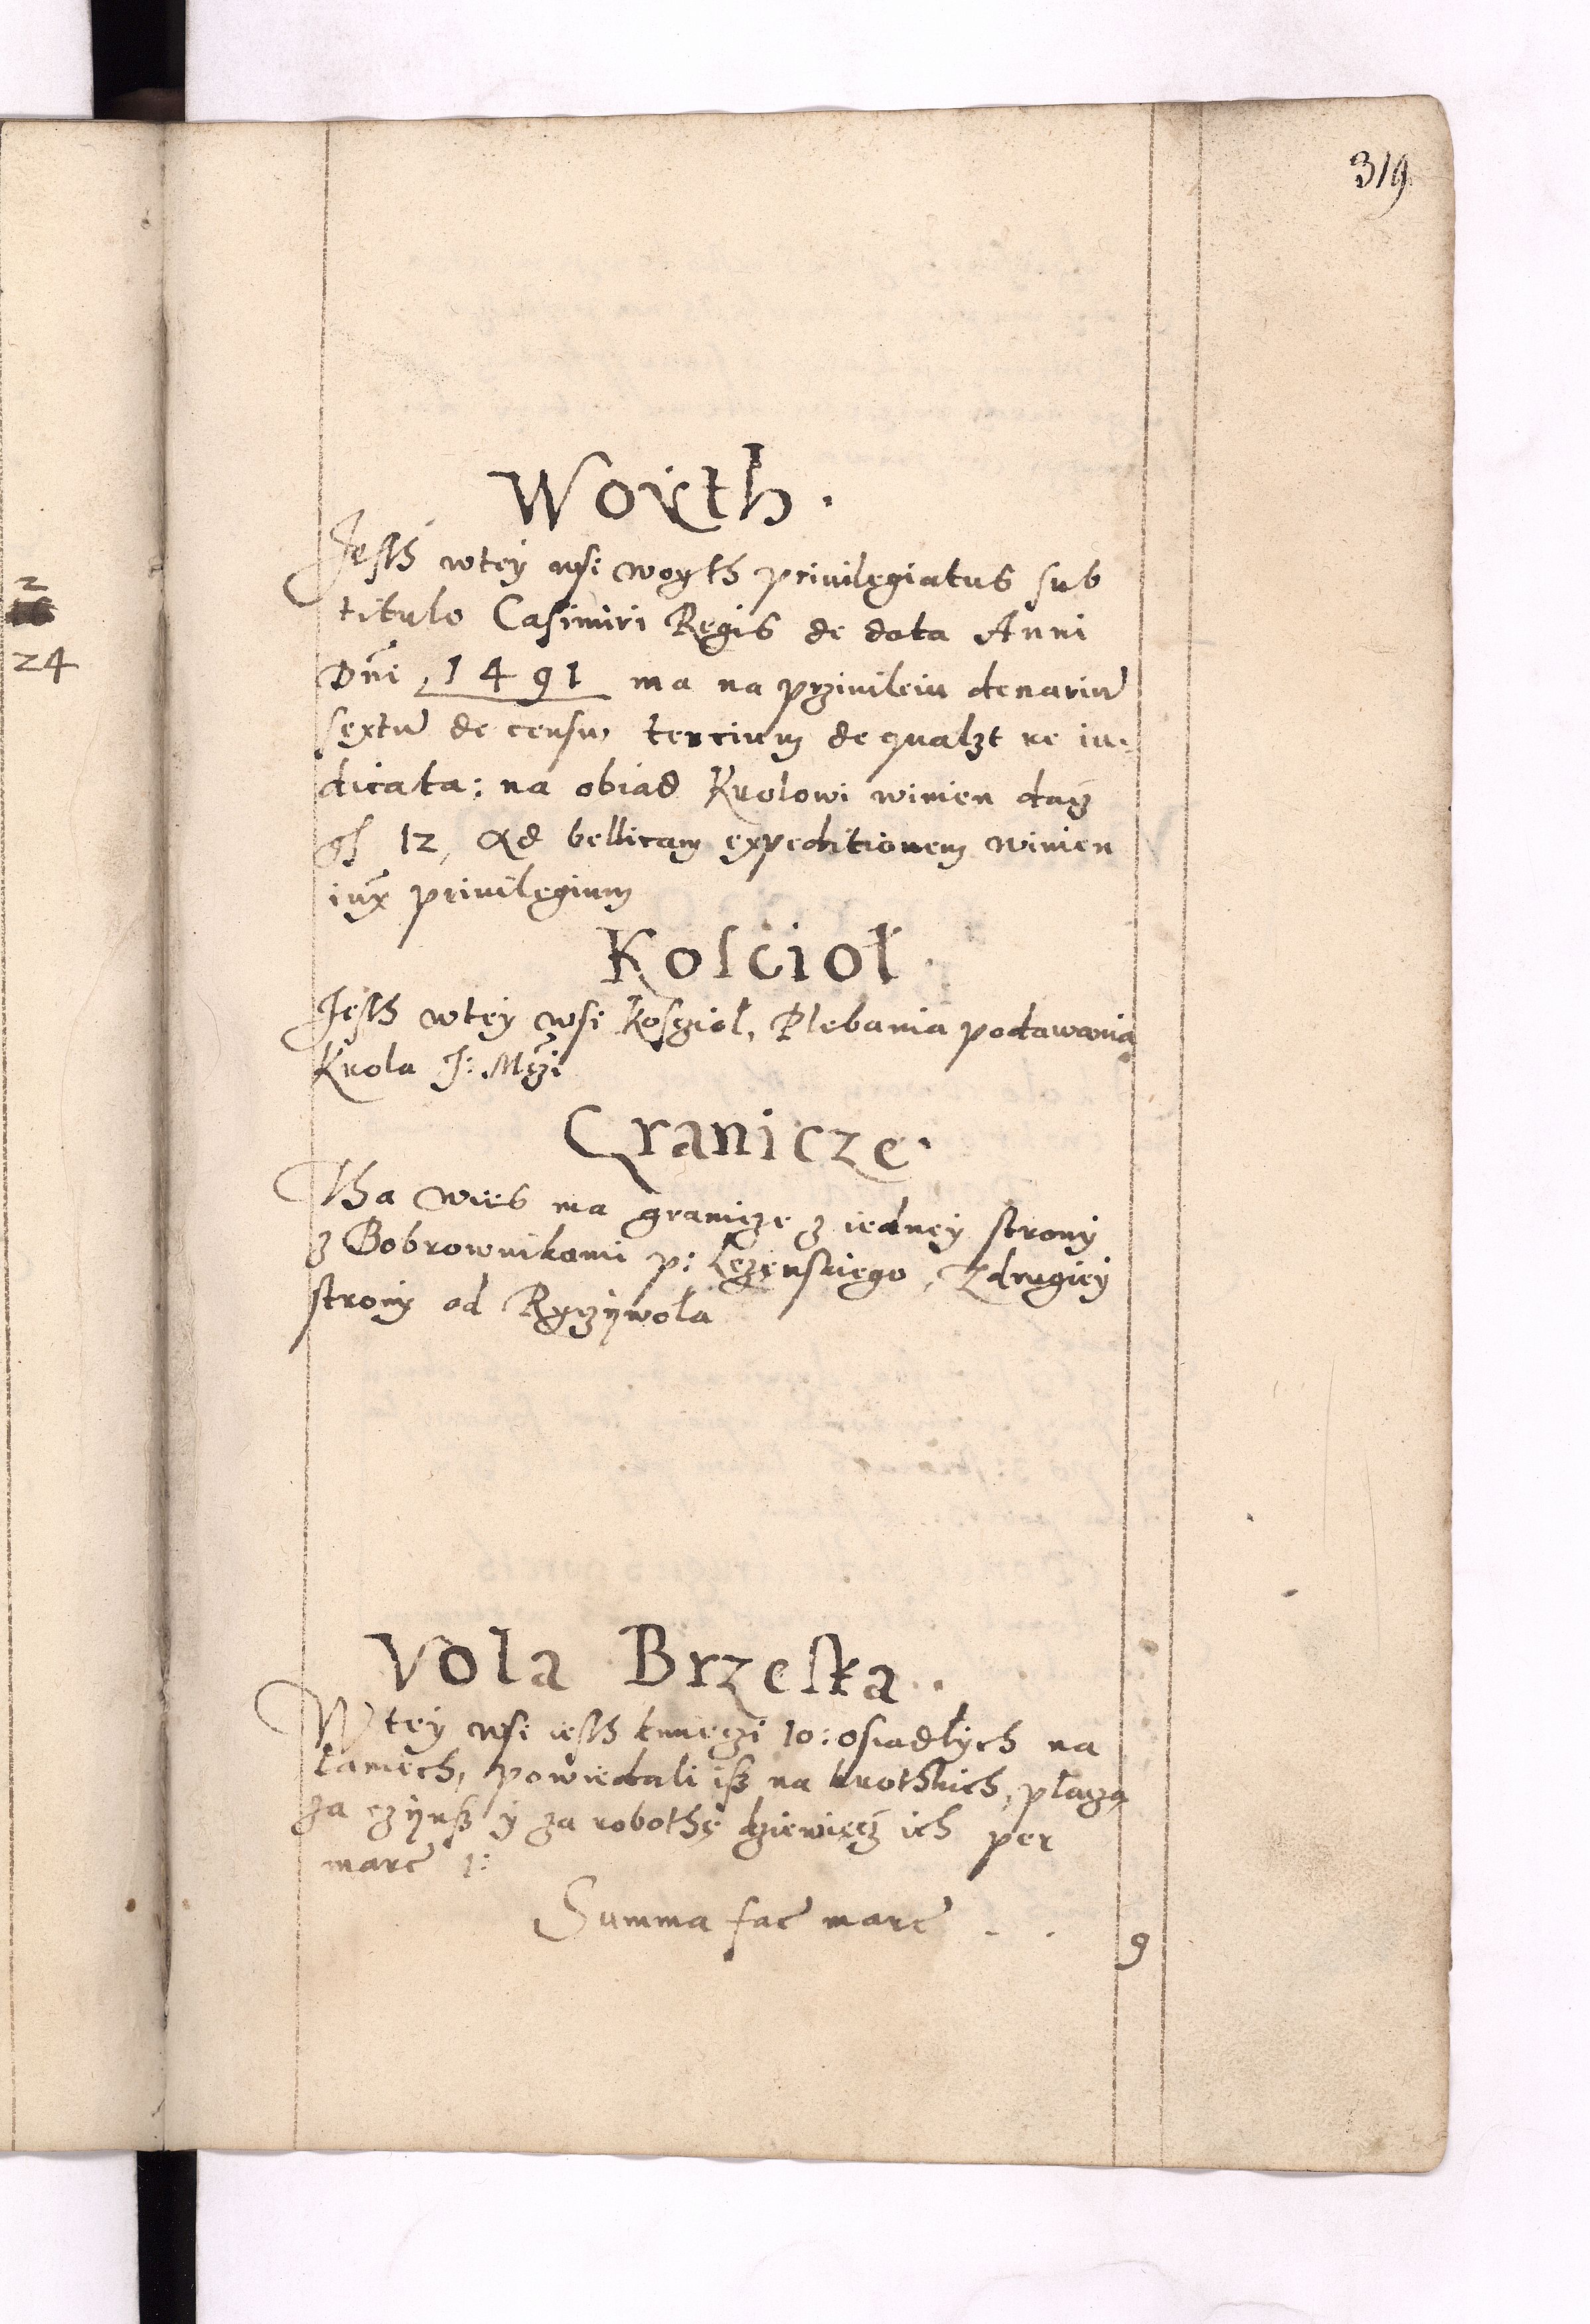 319
Woyth.
Jesth wtey wsi woyth privilegiatus sub
titulo Casimiri Regis de data Anni
Dni 1491 ma na przivileiu denariu
sextu de censu, tercium de qualzt re iu-
dicata: na obiad Krolowi winien dacz
gs 12, Ad bellicam expeditionem winien
iux privilegium
Kosciol.
Jesth wtey wsi kosczioł, Plebania podawania
Krola J: Mczi
Granicze.
Tha wies ma granicze z iedney strony
z Bobrownikami p: Leżenskiego, Z drugiey
strony od Ryczywoła
Vola Brzeska.
W tey wsi iesth kmieczi 10: osiadłych na
łaniech, powiedali isz na krothkich, płaczą
za czynsz y za robothę dziewięcz ich per
marc 1:
Summa fac marc . . 9
2
24